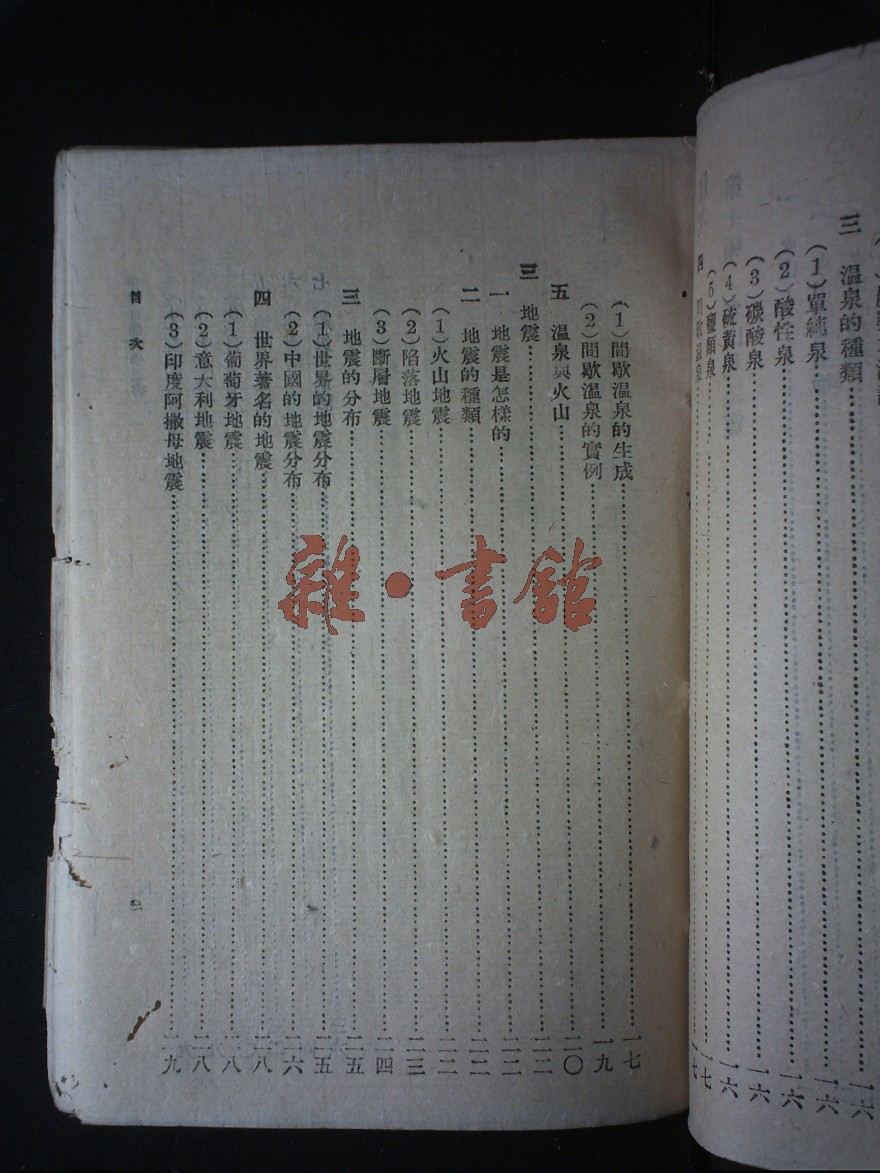 三 溫泉的種類……一六
(1)單純泉……一六
(2)酸性泉……一六
(3)碳酸泉……一六
(4)硫黃泉……一六
(5)鹽類泉……一七
四 間歇溫泉……一七
(1)間歇溫泉的生成……一七
(2)間歇溫泉的實例……一九
五 溫泉與火山……二〇
三 地震……二二
一 地震是怎樣的……二二
二 地震的種類……二二
(1)火山地震……二二
(2)陷落地震……二三
(3)斷層地震……二四
三 地震的分布……二五
(1)世界的地震分布……二五
(2)中國的地震分布……二六
四 世界著名的地震……二八
(1)葡萄牙地震……二八
(2)意大利地震……二八
(3)印度阿撒母地震……二九
目次
雜·書館